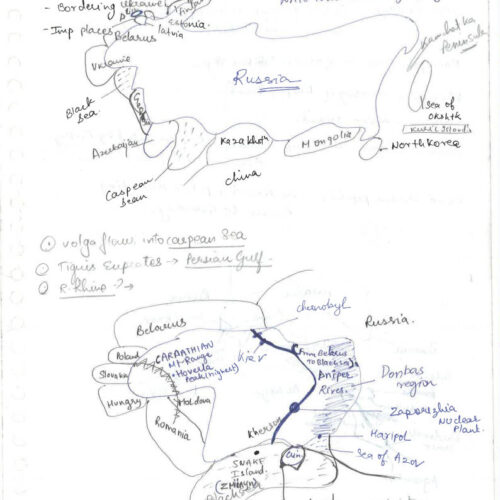 - Bordering Ukraine
- Imp places
Belarus
latvia
estonia
Ukraine
Russia
Kamchatka
Peninsula
Black
Sea
Sea of
Okshtk
Kuril Islands
North Korea
Azerbaijan
Kazakhstn
Mongolia
China
Caspean
Sean
Volga flows into caspean Sea
Tigris Euprotes → Persian Gulf.
R. Rhine →
chernobyl
Belarus
Russia.
Poland
CARAATHIAN
Mt-Range
Hoverla
Peak (highest)
Kiev
(From Belarus
to Black sea)
Dniper
River.
Donbas
region
Slovakia
Hungry
Moldova
Romania
Kherson
Zaporizhia
Nuclear
Plant.
Maripol
Sea of Azov
SNAKE
Island.
(ZMIINYI)
Black sea